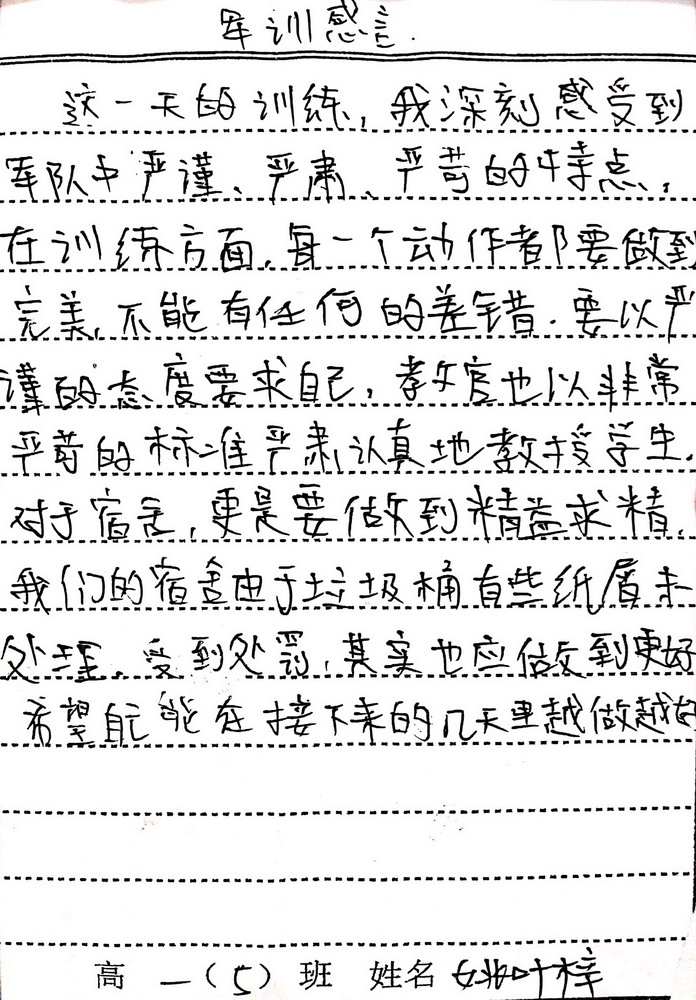 军训感言.
这一天的训练,我深刻感受到
军队中严谨、严肃、严苛的特点,
在训练方面,每一个动作都要做到
完美,不能有任何的差错.要以严
谨的态度要求自己,教官也以非常
严苛的标准严肃认真地教授学生.
对于宿舍,更是要做到精益求精,
我们的宿舍由于垃圾桶有些纸屑未
处理,受到处罚,其实也应做到更好
希望自己能在接下来的几天里越做越好
高一(5)班 姓名 姚叶梓